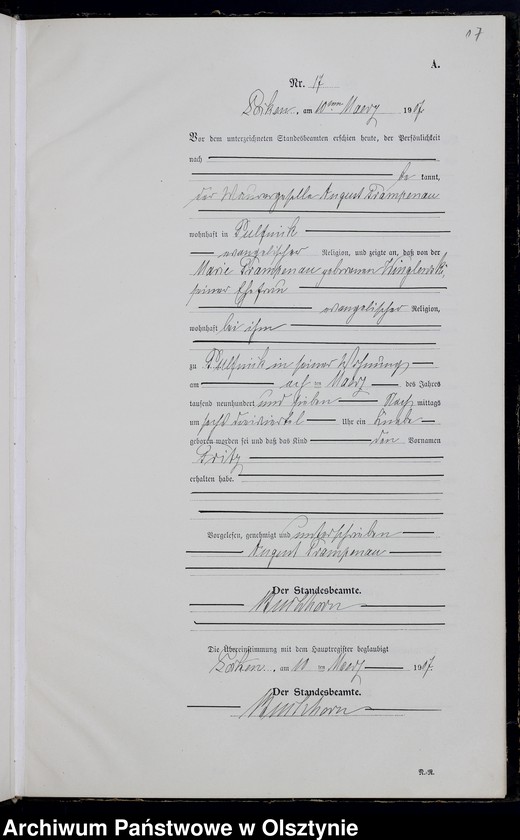 17
A.
Nr. 17
am 10ten Maerz 1907
Vor dem unterzeichneten Standesbeamten erschien heute, der Persönlichkeit
nach
be kannt,
der Maurergeselle August
wohnhaft in Pulfnick
evangelischer Religion, und zeigte an, daß von der
Marie geborenen
seiner Ehefrau
evangelischer Religion,
wohnhaft bei ihm
zu Pulfnick in seiner Wohnung
am ten Maerz des Jahres
tausend neunhundert und sieben Nach mittags
um sechs dreiviertel Uhr ein Knabe
geboren worden sei und daß das Kind den Vornamen
Fritz
erhalten habe.
Vorgelesen, genehmigt und unterschrieben
August
Der Standesbeamte.
Die Übereinstimmung mit dem Hauptregister beglaubigt
am 10 ten Maerz 1907.
Der Standesbeamte.
R.-R.
Archiwum Państwowe w Olsztynie